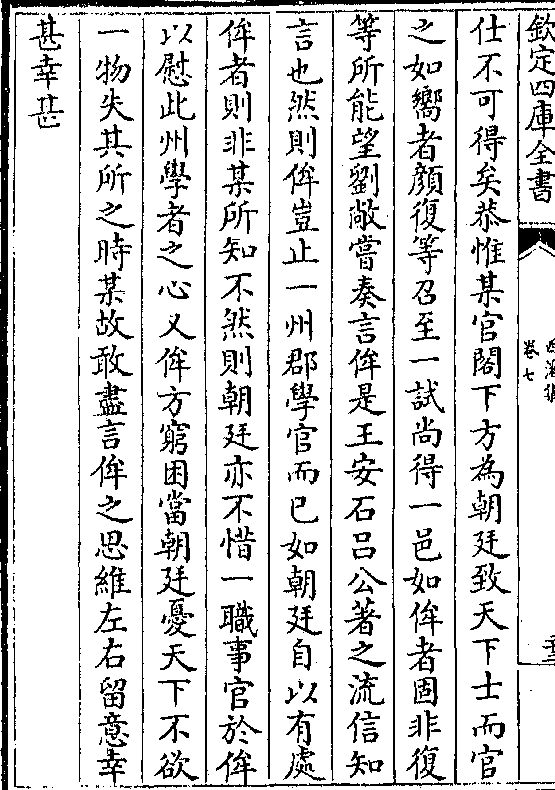 欽定四庫全書
卷七
仕不可得矣恭惟某官閤下方為朝廷致天下士而官
之如嚮者顔復等召至一試尚得一邑如侔者固非復
等所能望劉敞嘗奏言侔是王安石吕公著之流信知
言也然則侔豈止一州郡學官而已如朝廷自以有處
侔者則非某所知不然則朝廷亦不惜一職事官於侔
以慰此州學者之心又侔方窮困當朝廷憂天下不欲
一物失其所之時某故敢盡言侔之思維左右留意幸
甚幸甚